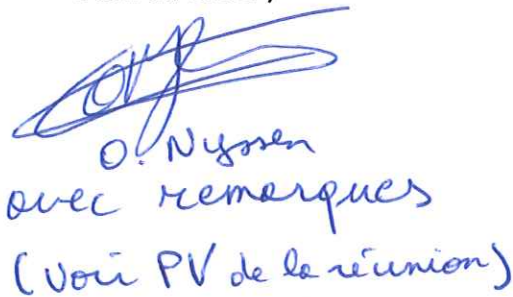 O. Nyssen
avec remarques
(Voir PV de la réunion)